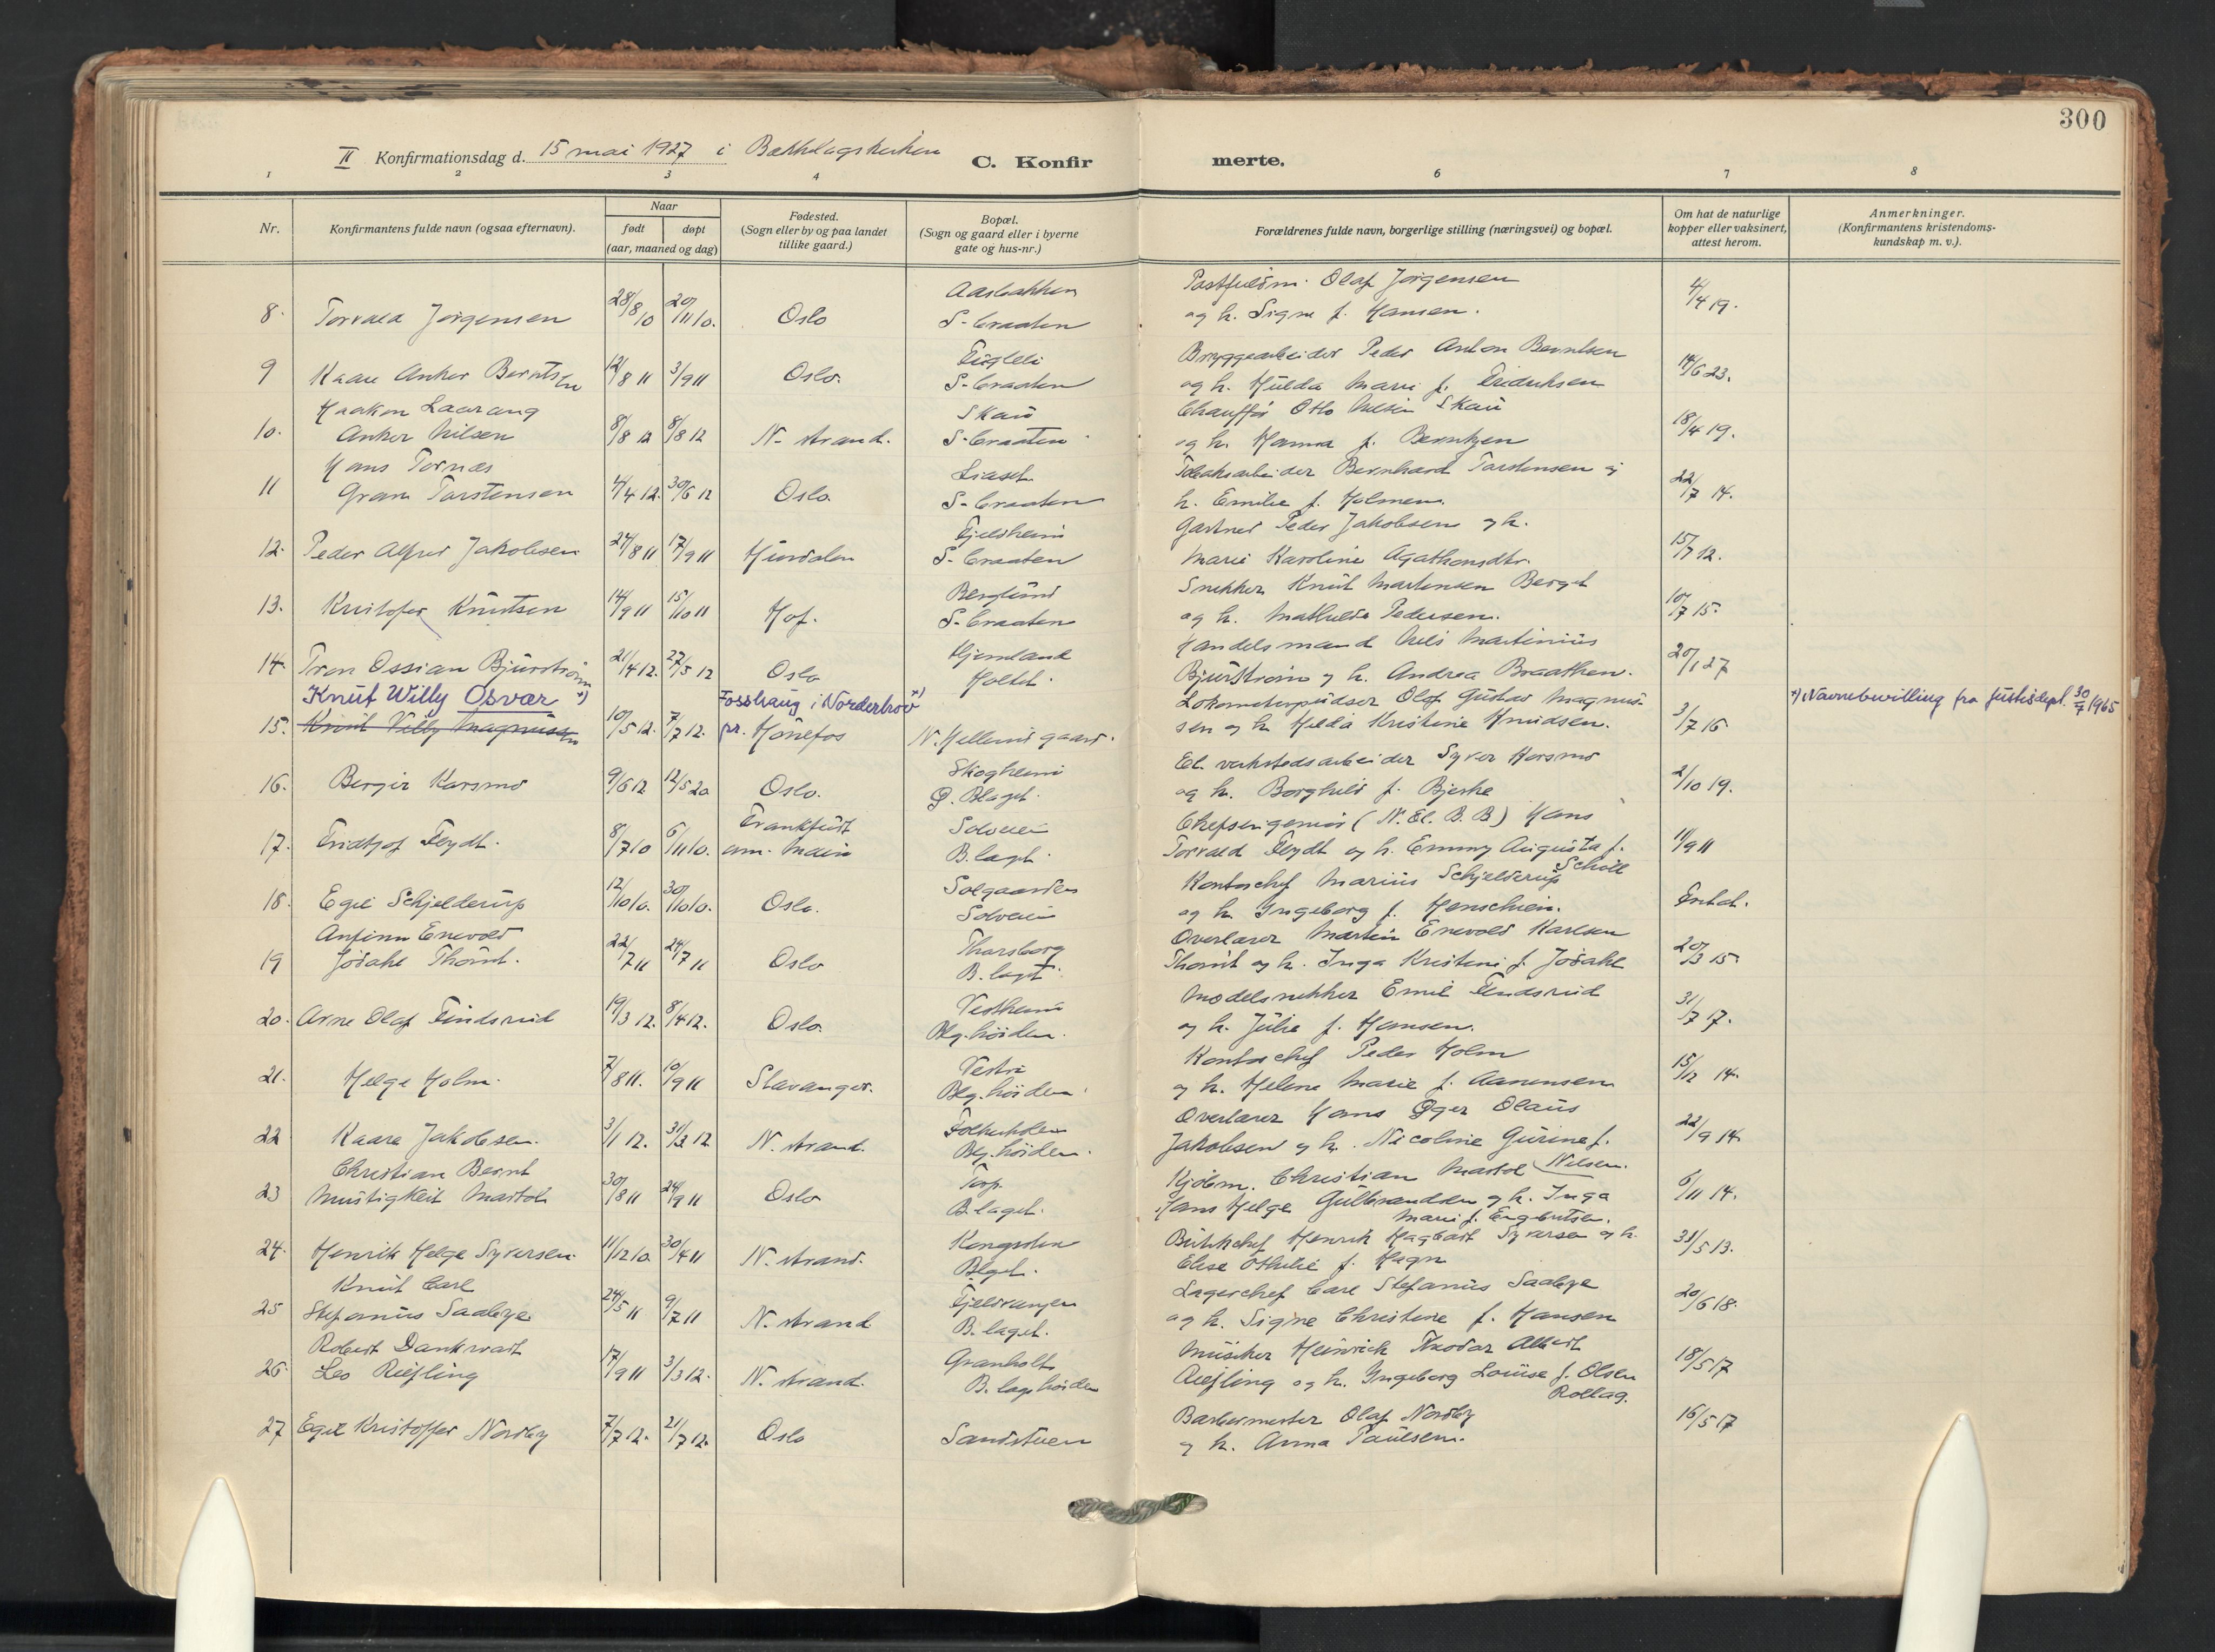 300
II Konfirmationsdag d. 15 mai 1927 i Bækkelagskirken C. Konfir merte.
1 2 3 4 6 7 8
Nr.
Konfirmantens fulde navn (ogsaa efternavn).
Naar
født døpt
(aar, maaned og dag)
Fødested.
(Sogn eller by og paa landet
tillike gaard.)
Bopæl.
(Sogn og gaard eller i byerne
gate og hus-nr.)
Forældrenes fulde navn, borgerlige stilling (næringsvei) og bopæl.
Om hat de naturlige
kopper eller vaksinert,
attest herom.
Anmerkninger.
(Konfirmantens kristendoms-
kundskap m. v.).
Aasbakken Postfuldm. Olaf Jørgensen
8. Torvald Jørgensen 28/8 10 20/11 10. Oslo S-braaten og h. Signe f. Hansen. 4/4 19.
Fuglli Bryggearbeider Peder Anton Berntsen
9 Kaare Anker Berntsen 12/8 11 3/9 11 Oslo. S-braaten og h. Hulda Marie f. Fredriksen 14/6 23.
Haakon Laurang Skau Chauffør Otto Nilsen Skau
10. Anker Nilsen 8/8 12 8/8 12 N-strand. S-braaten og h. Hanna f. Berntzen 18/4 19.
Hans Tornæs Liaset Tobaksarbeider Bernhard Torstensen og
11 Gram Torstensen 4/4 12. 30/6 12 Oslo. S-braaten h. Emilie f. Holmen. 22/7 14.
Fjeldheim Gartner Peder Jakobsen og h.
12. Peder Alfred Jakobsen 24/8 11 17/9 11 Hurdalen S-braaten Marie Karoline Agathonsdtr. 15/7 12.
Berglund Snekker Knut Martensen Berget
13. Kristofer Knutsen 14/9 11 15/10 11 Hof. S-braaten og h. Mathilde Pedersen. 10/7 15.
Hjemland Handelsmand Nils Martinius
14. Tron Ossian Bjurstrøm 21/4 12. 27/5 12 Oslo Holtet. Bjurstrøm og h. Andrea Braathen. 20/1 27
Knut Willy Osvær *) Fosshaug i Norderhov *) Lokomotivpudser Olaf Gustav Magnus- *) Navnebevilling fra Justisdept. 30/7 1965
15. Knut Villy Magnussen 10/5 12. 7/7 12. pr. Hønefos N. Hellerud gaard. sen og h. Hilda Kristine Knudsen. 3/7 16
Skogheim El. verkstedsarbeider Syver Korsmo
16. Bergir Korsmo 9/6 12 12/5 20 Oslo. Ø. Blaget. og h. Borghild f. Bjerke 2/10 19.
Frankfurt Solveien Chefsingeniør (N. El. B. B) Hans
17. Fridtjof Flydt. 8/7 10 6/11 10. am. Main B. laget. Torvald Flydt og h. Emmy Augusta f. Scholl 11/9 11
Solgaarden Kontorchef Marius Schjelderup
18. Egil Schjelderup 12/10 10. 30/10 10. Oslo. Solveien og h. Ingeborg f. Henschien. Forbd.
Anfinn Enevold Thorsborg Overlærer Martin Enevold Karlsen
19 Jødahl Thomt. 22/7 11 24/7 11 Oslo B. laget. Thomt og h. Inga Kristine f. Jødahl 20/3 15.
Vestheim Modelsnekker Emil Findsrud
20. Arne Olaf Findsrud 19/3 12. 8/4 12. Oslo. Blg. høiden. og h. Julie f. Hansen. 31/7 17.
Vestre Kontorchef Peder Holm
21. Helge Holm. 7/8 11. 10/9 11 Stavanger. Blg. høiden. og h. Helene Marie f. Aanensen 15/12 14.
Solbakken Overlærer Hans Øger Olaus
22 Kaare Jakobsen. 3/1 12. 31/3 12 N. strand. Blg. høiden. Jakobsen og h. Nicoline Gurine f. Nilsen. 22/9 14.
Christian Bernt Torp. Kjøbm. Christian Martol
23 Mustigkeit Martol 30/8 11 24/9 11 Oslo B. laget. Hans Helge Gulbrandsen og h. Inga Marie f. Engebretsen. 6/11 14.
Kongsolen Butikchef Henrik Hagbart Syversen og h.
24. Henrik Helge Syversen. 11/12 10. 30/4 11 N. strand. Blget. Elise Othilie f. Hagn 31/5 13.
Knut Carl Fjeldvangen Lagerchef Carl Stefanus Saabye
25 Stefanus Saabye 24/5 11 9/7 11 N. strand B. laget. og h. Signe Christine f. Hansen 20/6 18.
Robert Dankwart Granholt Musiker Heinrich Theodor Albert
26. Leo Riefling 17/9 11 3/3 12. N. strand. B. lagshøiden Riefling og h. Ingeborg Louise f. Olsen Rollag. 18/5 17
Barbermester Olaf Nordby
27 Egil Kristoffer Nordby 7/7 12. 21/7 12. Oslo Sandstuen og h. Anna Paulsen. 16/5 17